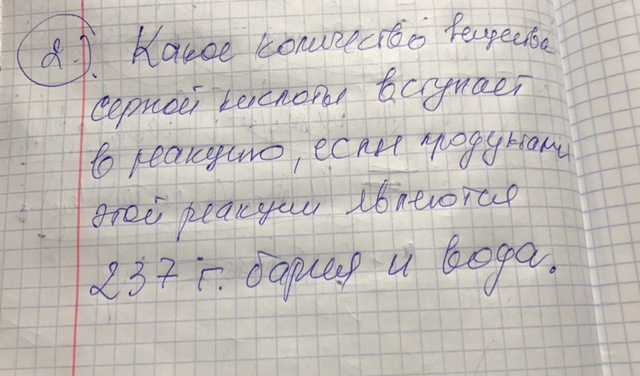 2.). Какое количество вещества
серной кислоты вступает
в реакцию, если продуктами
этой реакции являются
237 г. бария и вода.